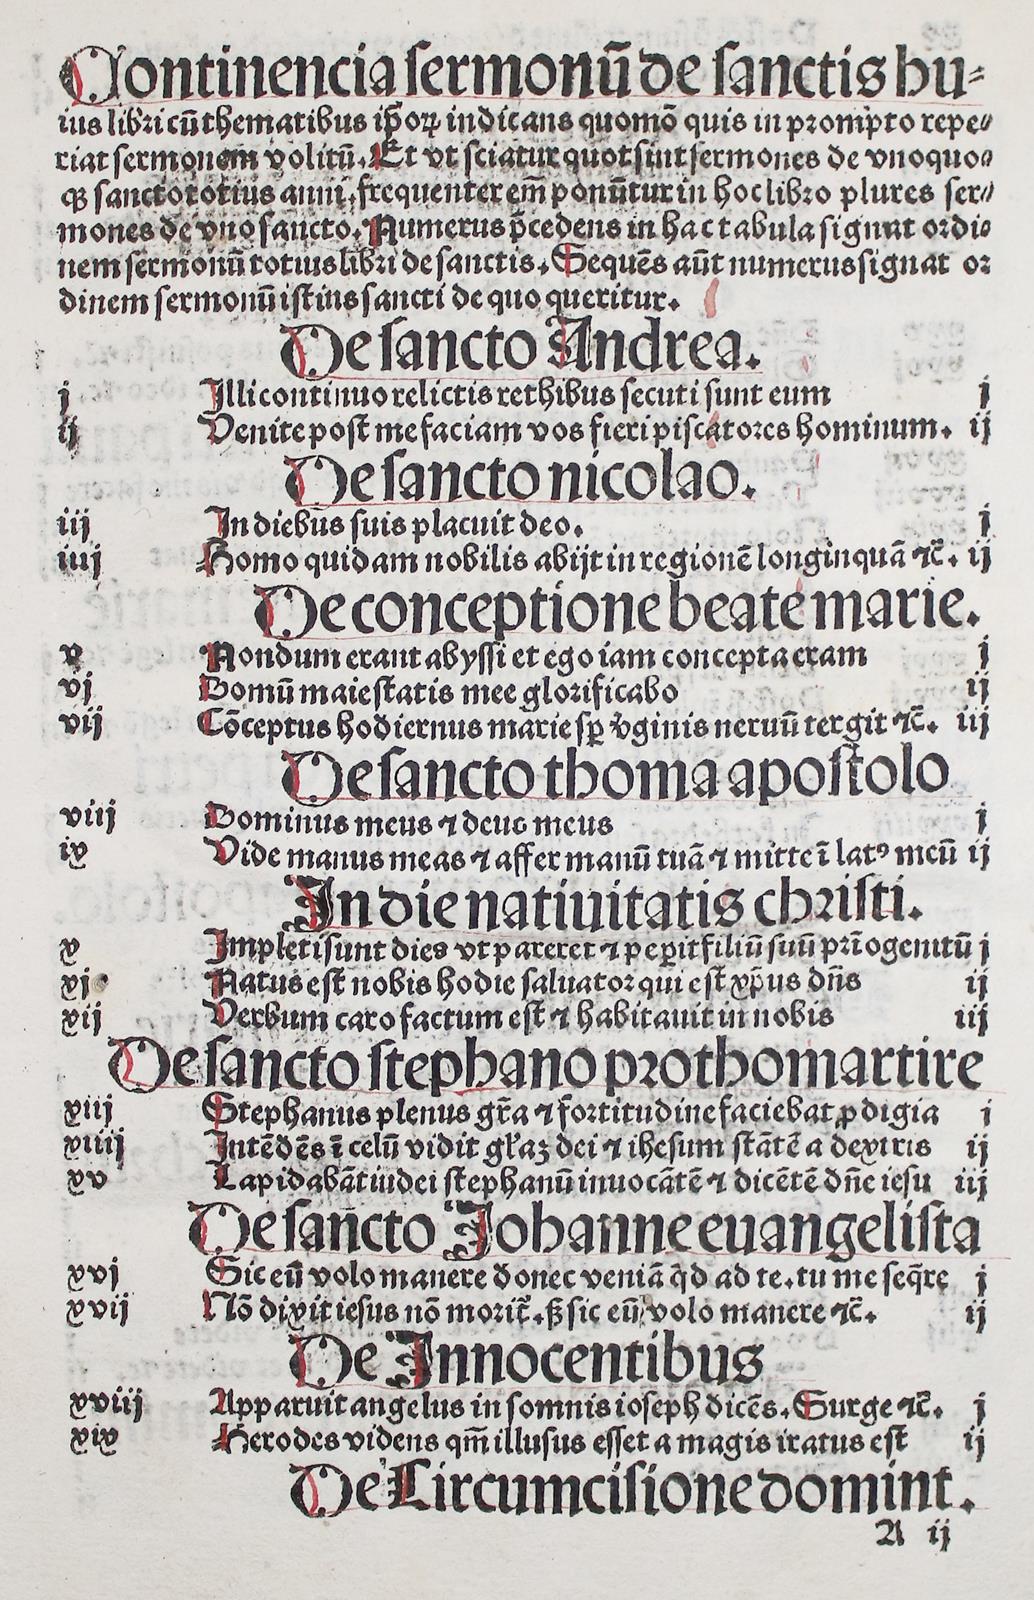 Continencia sermonū de sanctis hu⸗
ius libri cū thematibus ip̄oꝝ indicans quomō quis in prompto repe⸗
riat sermonem volitū. Et vt sciatur quot sint sermones de vnoquo⸗
qꝫ sancto totius anni, frequenter em̄ ponūtur in hoc libro plures ser⸗
mones de vno sancto. Numerus p̄cedens in hac tabula signat ordi⸗
nem sermonū totius libri de sanctis. Sequēs aūt numerus signat or
dinem sermonū istius sancti de quo queritur.
De sancto Andrea.
j Illi continuo relictis rethibus secuti sunt eum j
ij Venite post me faciam vos fieri piscatores hominum. ij
De sancto nicolao.
iij In diebus suis placuit deo. j
iiij Homo quidam nobilis abijt in regionē longinquā ⁊c̄. ij
De conceptione beate marie.
v Nondum erant abyssi et ego iam concepta eram j
vj Domū maiestatis mee glorificabo ij
vij Cōceptus hodiernus marie sꝑ v̄ginis neruū tergit ⁊c̄. iij
De sancto thoma apostolo
viij Dominus meus ⁊ deus meus j
ix Vide manus meas ⁊ affer manū tuā ⁊ mitte ī latꝰ meū ij
In die natiuitatis christi.
x Impleti sunt dies vt pareret ⁊ peꝑit filiū suū prīogenitū j
xj Natus est nobis hodie saluator qui est xp̄us dn̄s ij
xij Verbum caro factum est ⁊ habitauit in nobis iij
De sancto stephano prothomartire
xiij Stephanus plenus gr̄a ⁊ fortitudine faciebat ꝓdigia j
xiiij Intēdēs ī celū vidit gl̄aꝫ dei ⁊ ihesum stātē a dextris ij
xv Lapidabāt iudei stephanū inuocātē ⁊ dicētē dn̄e iesu iij
De sancto Johanne euangelista
xvj Sic eū volo manere donec veniā qd̄ ad te. tu me seq̄re j
xvij Nō dixit iesus nō morit̄. sꝫ sic eū volo manere ⁊c̄. ij
De Innocentibus
xviij Apparuit angelus in somnis ioseph dicēs. Surge ⁊c̄. j
xix Herodes videns qm̄ illusus esset a magis iratus est ij
De Circumcisione domini.
A ij